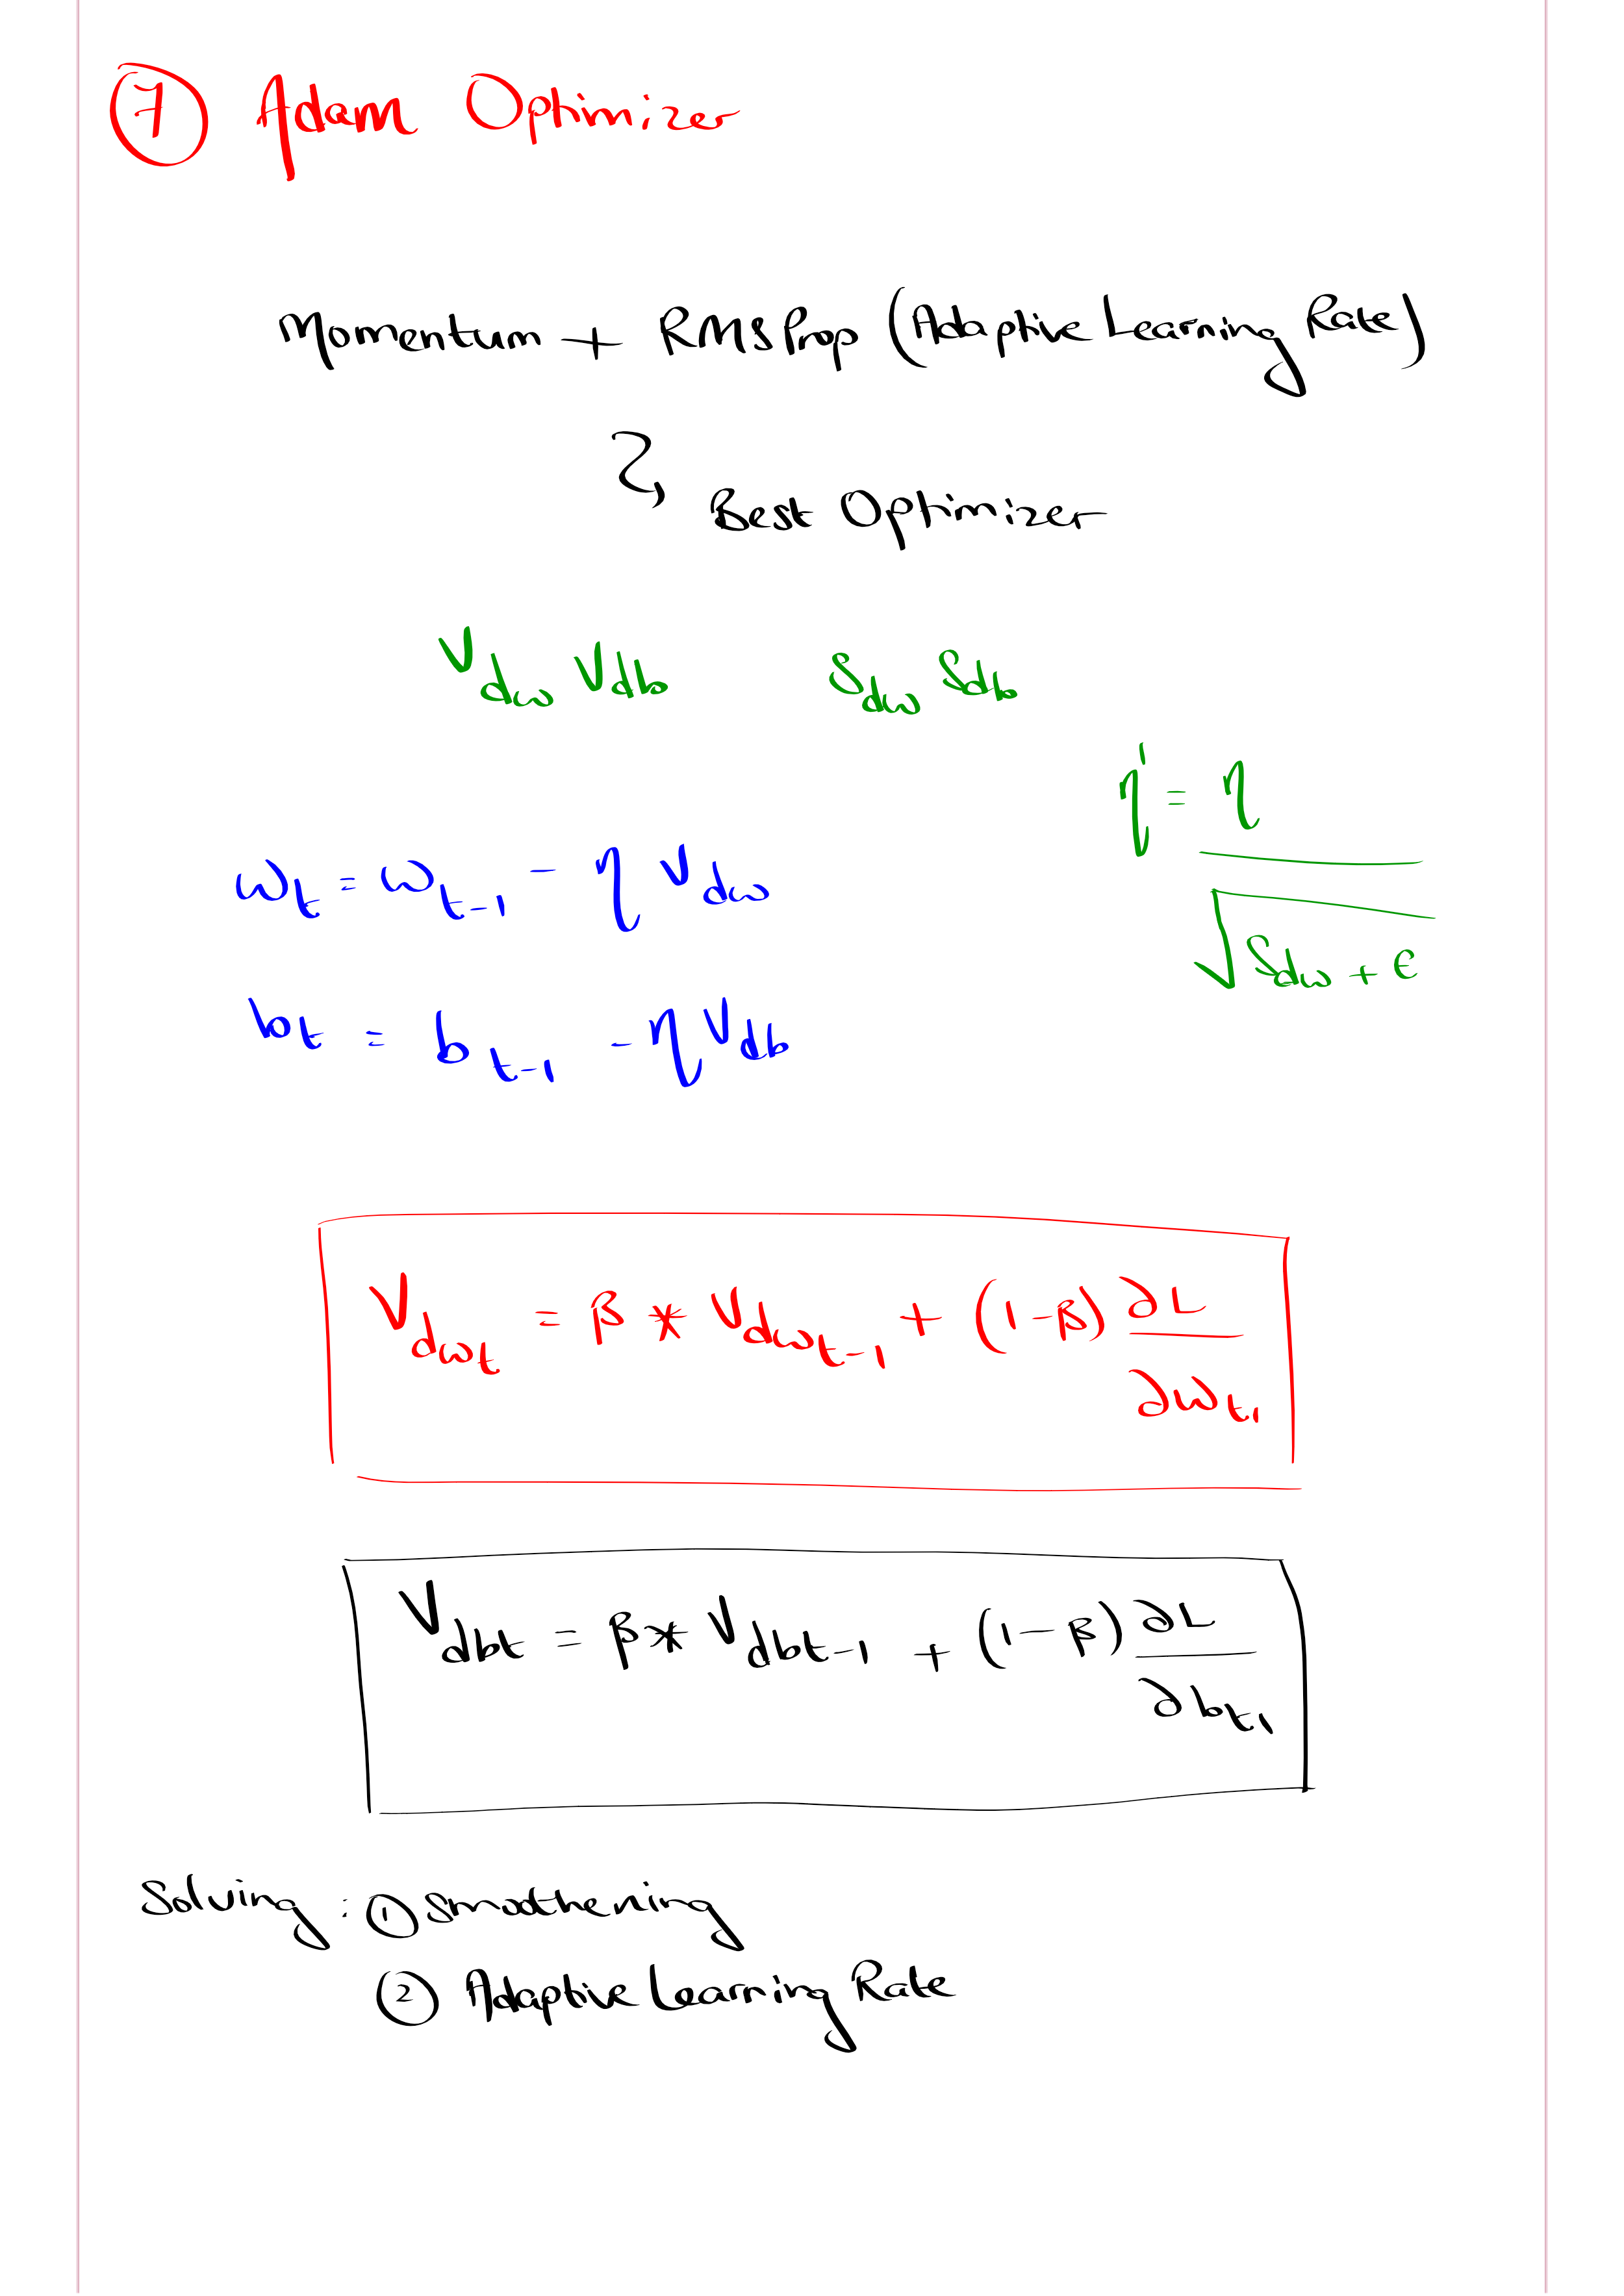 ⑦ Adam Optimizer
Momentum + RMSProp (Adaptive Learning Rate)
Best Optimizer
V_dω V_db S_dω S_db
η' = η / √(S_dω + ϵ)
ω_t = ω_{t-1} - η V_dω
b_t = b_{t-1} - η V_db
V_{dω_t} = β * V_{dω_{t-1}} + (1-β) ∂L / ∂ω_{t1}
V_{db_t} = β * V_{db_{t-1}} + (1-β) ∂L / ∂b_{t1}
Solving : ① Smoothening
② Adaptive Learning Rate